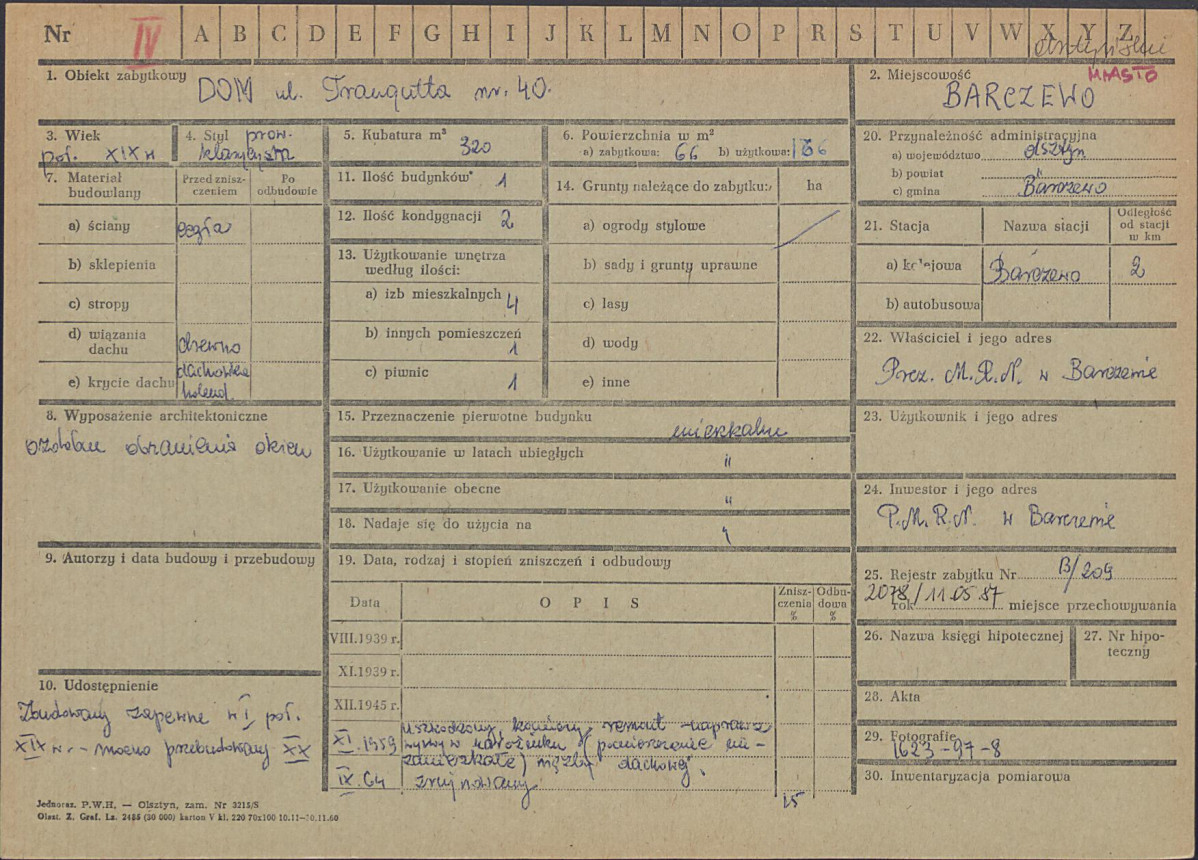 Nr IV A B C D E F G H I J K L M N O P R S T U V W X Y Z
1. Obiekt zabytkowy
DOM ul. Traugutta nr. 40.
2. Miejscowość
MIASTO
BARCZEWO
3. Wiek
poł. XIX w
4. Styl
prow. klasycyzm
5. Kubatura m³
320
6. Powierzchnia w m²
a) zabytkowa: 66 b) użytkowa: 166
7. Materiał budowlany
Przed zniszczeniem
Po odbudowie
a) ściany cegła
b) sklepienia
c) stropy
d) wiązania dachu drewno
e) krycie dachu dachówka holend.
8. Wyposażenie architektoniczne
ozdobne obramienia okien
9. Autorzy i data budowy i przebudowy
10. Udostępnienie
Zbudowany zapewne w I poł.
XIX w. - mocno przebudowany XX
11. Ilość budynków 1
12. Ilość kondygnacji 2
13. Użytkowanie wnętrza
według ilości:
a) izb mieszkalnych 4
b) innych pomieszczeń 1
c) piwnic 1
14. Grunty należące do zabytku: ha
a) ogrody stylowe
b) sady i grunty uprawne
c) lasy
d) wody
e) inne
15. Przeznaczenie pierwotne budynku
mieszkalne
16. Użytkowanie w latach ubiegłych "
17. Użytkowanie obecne "
18. Nadaje się do użycia na
19. Data, rodzaj i stopień zniszczeń i odbudowy
Data
O P I S
Zniszczenia %
Odbudowa %
VIII.1939 r.
XI.1939 r.
XII.1945 r.
XI.1959 uszkodzony, kominy, remont - naprawa
w narożniku (pomieszczenie nie-
zamieszkałe) więźby dachowej,
IX.64 zrujnowany
15
20. Przynależność administracyjna
a) województwo Olsztyn
b) powiat "
c) gmina Barczewo
21. Stacja
Nazwa stacji
Odległość od stacji w km
a) kolejowa Barczewo 2
b) autobusowa
22. Właściciel i jego adres
Prez. M.R.N. w Barczewie
23. Użytkownik i jego adres
24. Inwestor i jego adres
P.M.R.N. w Barczewie
25. Rejestr zabytku Nr B/209
2078/11 05 87
rok miejsce przechowywania
26. Nazwa księgi hipotecznej
27. Nr hipoteczny
28. Akta
29. Fotografie
1623-97-8
30. Inwentaryzacja pomiarowa
Jednoraz. P.W.H. — Olsztyn, zam. Nr 3215/S
Olszt. Z. Graf. Lz. 2485 (30 000) karton V kl. 220 70x100 10.11—30.11.60